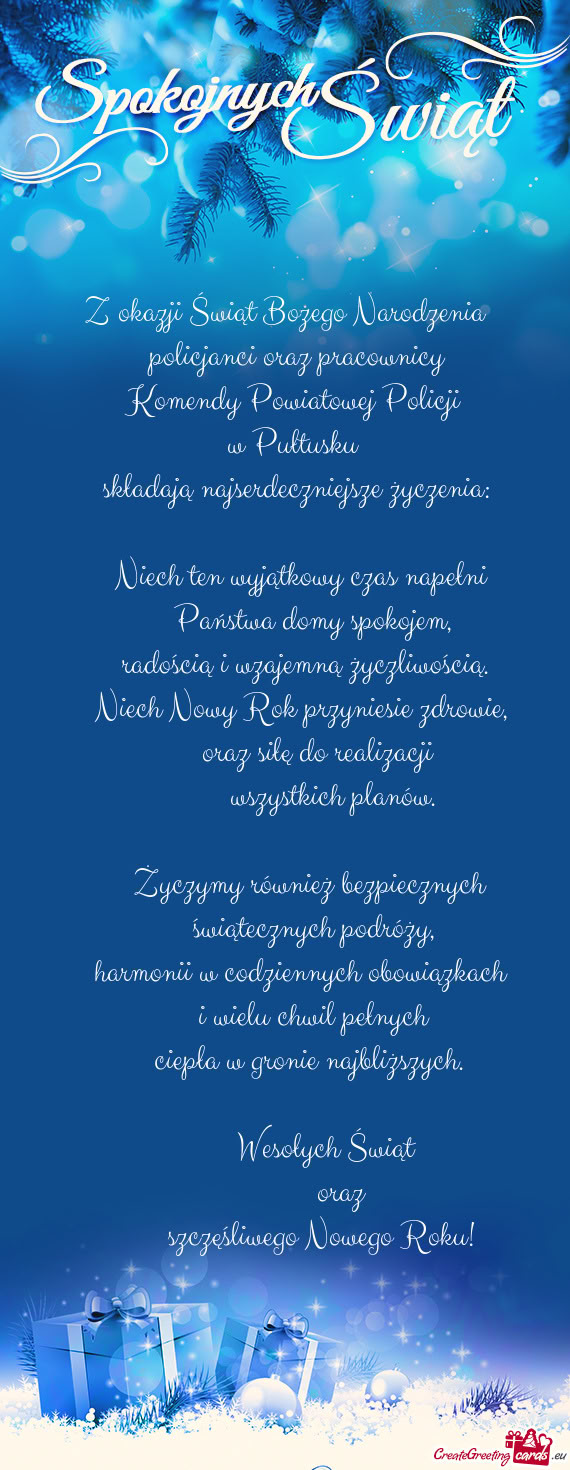 Spokojnych Świąt
Z okazji Świąt Bożego Narodzenia
policjanci oraz pracownicy
Komendy Powiatowej Policji
w Pułtusku
składają najserdeczniejsze życzenia:
Niech ten wyjątkowy czas napełni
Państwa domy spokojem,
radością i wzajemną życzliwością.
Niech Nowy Rok przyniesie zdrowie,
oraz siłę do realizacji
wszystkich planów.
Życzymy również bezpiecznych
świątecznych podróży,
harmonii w codziennych obowiązkach
i wielu chwil pełnych
ciepła w gronie najbliższych.
Wesołych Świąt
oraz
szczęśliwego Nowego Roku!
CreateGreetingcards.eu